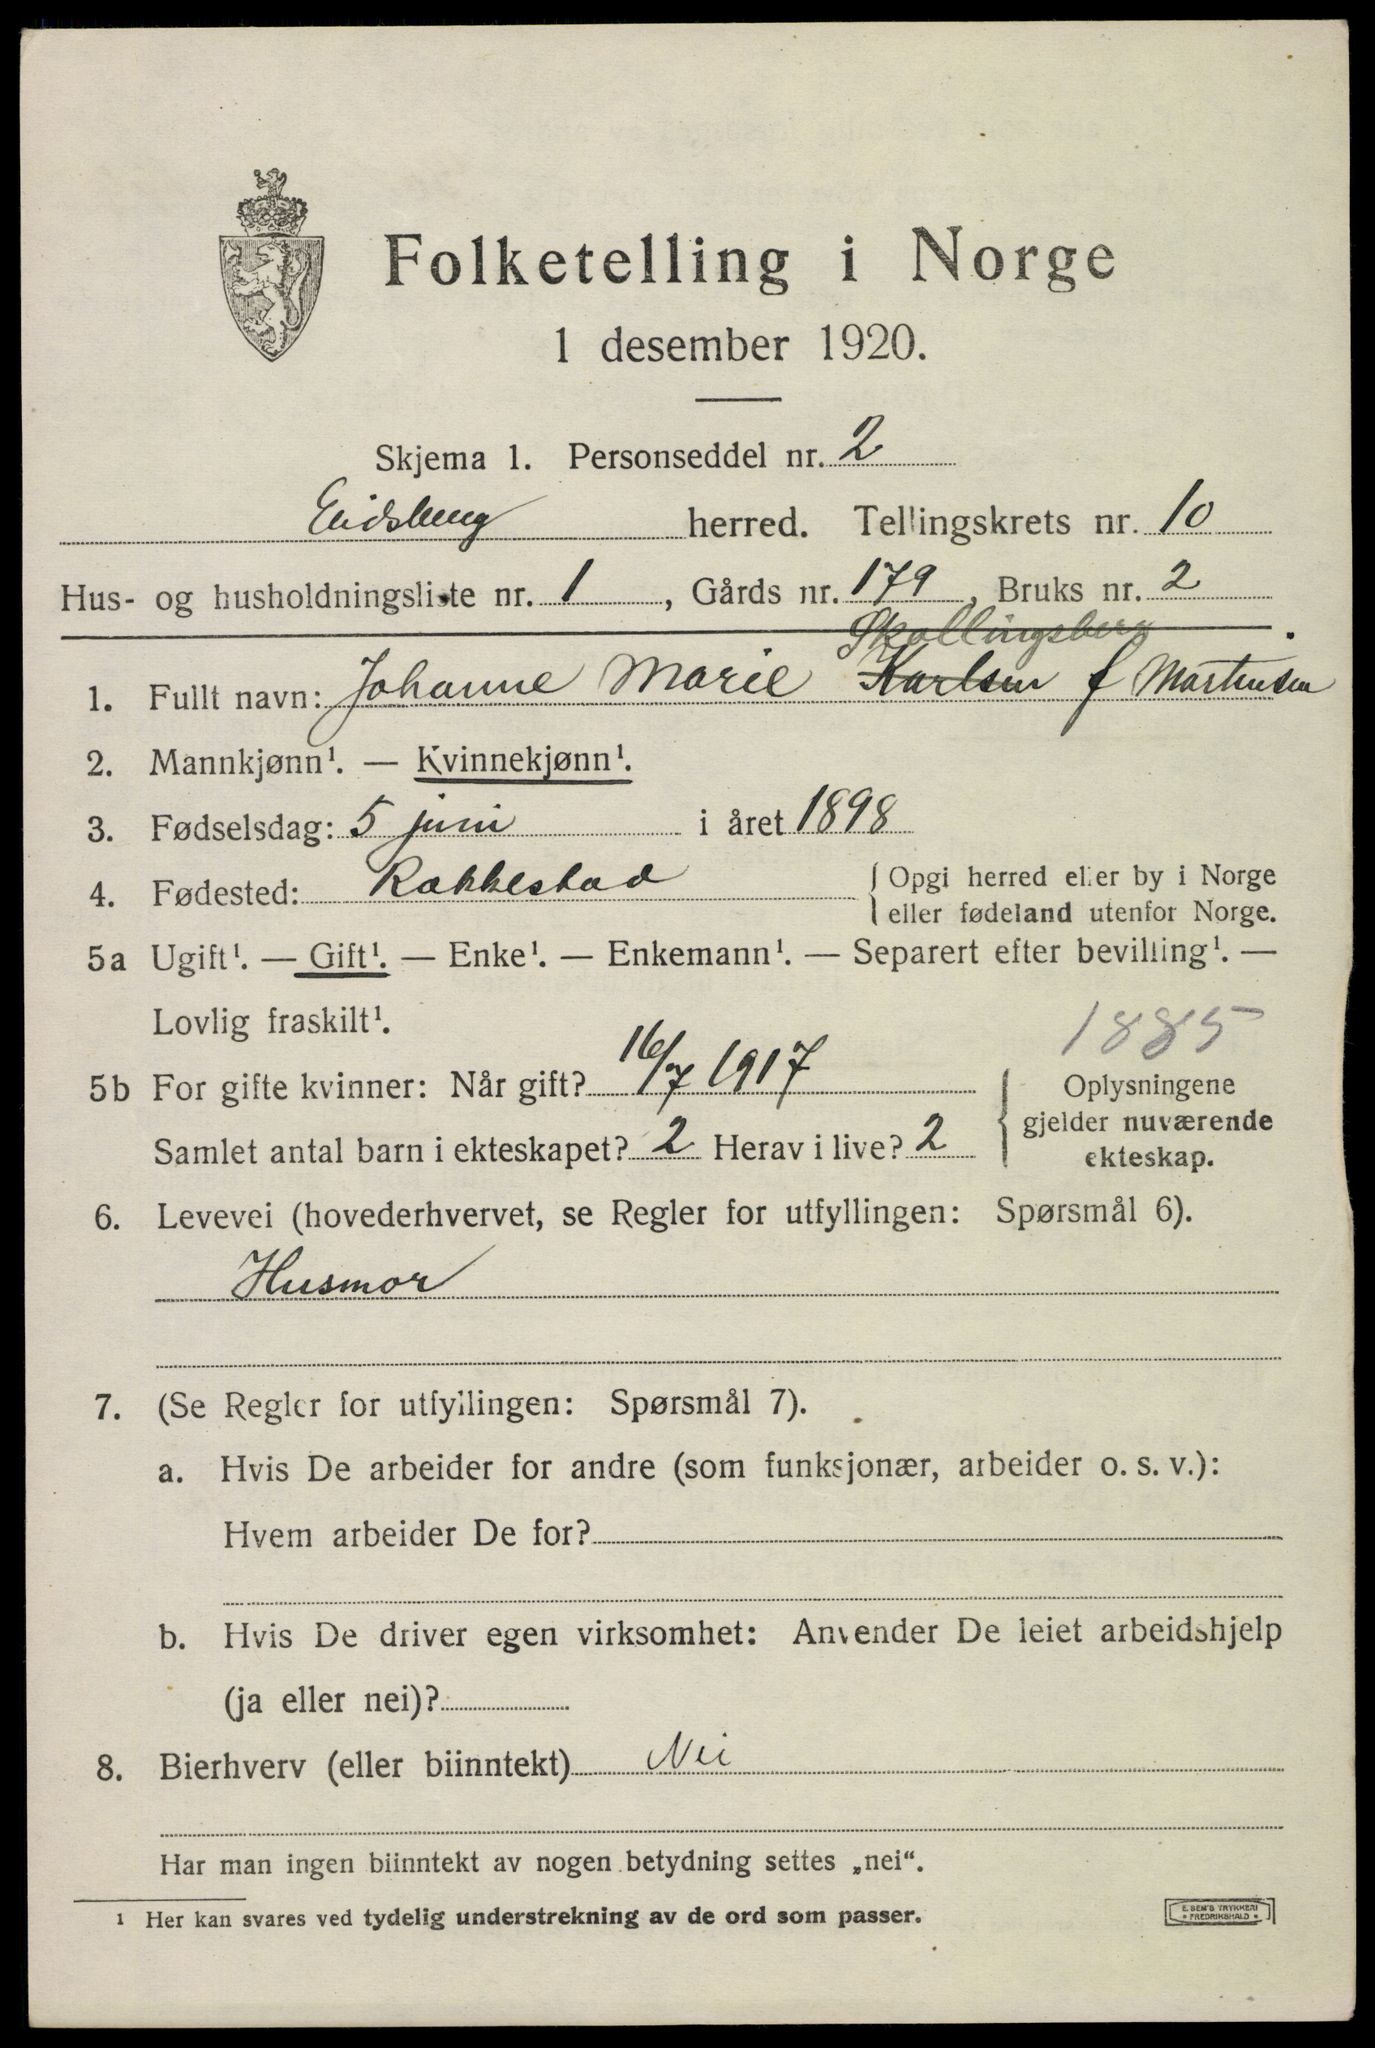 Folketelling i Norge
1 desember 1920.
Skjema 1. Personseddel nr. 2
Eidsberg herred. Tellingskrets nr. 10
Hus- og husholdningsliste nr. 1, Gårds nr. 179, Bruks nr. 2
Skallingsberg
1. Fullt navn: Johanne Marie Karlsen f Martensen
2. Mannkjønn¹. — Kvinnekjønn¹.
3. Fødselsdag: 5 juni i året 1898
4. Fødested: Rakkestad { Opgi herred eller by i Norge
eller fødeland utenfor Norge.
5a Ugift¹. — Gift¹. — Enke¹. — Enkemann¹. — Separert efter bevilling¹. —
Lovlig fraskilt¹.
1885
5b For gifte kvinner: Når gift? 16/7 1917
Samlet antal barn i ekteskapet? 2 Herav i live? 2
{ Oplysningene
gjelder nuværende
ekteskap.
6. Levevei (hovederhvervet, se Regler for utfyllingen: Spørsmål 6).
Husmor
7. (Se Regler for utfyllingen: Spørsmål 7).
a. Hvis De arbeider for andre (som funksjonær, arbeider o. s. v.):
Hvem arbeider De for?
b. Hvis De driver egen virksomhet: Anvender De leiet arbeidshjelp
(ja eller nei)?
8. Bierhverv (eller biinntekt) Nei
Har man ingen biinntekt av nogen betydning settes „nei“.
¹ Her kan svares ved tydelig understrekning av de ord som passer.
E. SEM'S TRYKKERI
• FREDRIKSHALD •